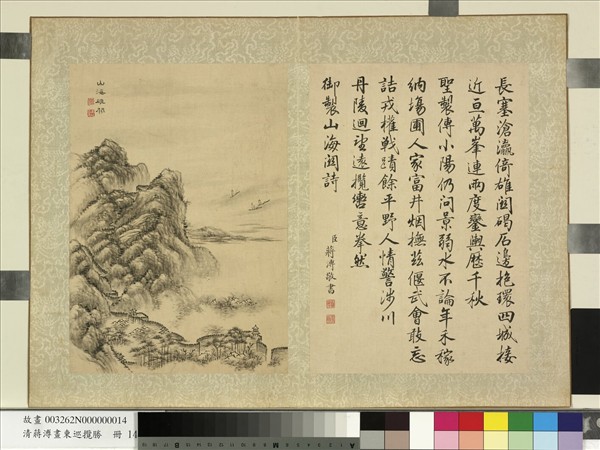 長塞滄瀛倚雄關碣石邊抱環四城接
近亘萬峯連兩度鑾輿歷千秋
聖製傳小陽仍問景弱水不論年禾稼
納場圃人家富井烟撫茲偃武會敢忘
詰戎權戰蹟餘平野人情警涉川
丹陵迴望遠攬轡意拳然
御製山海關詩
臣蔣溥敬書
山海雄
故畫 003262N000000014
清蔣溥畫東巡攬勝 冊 14